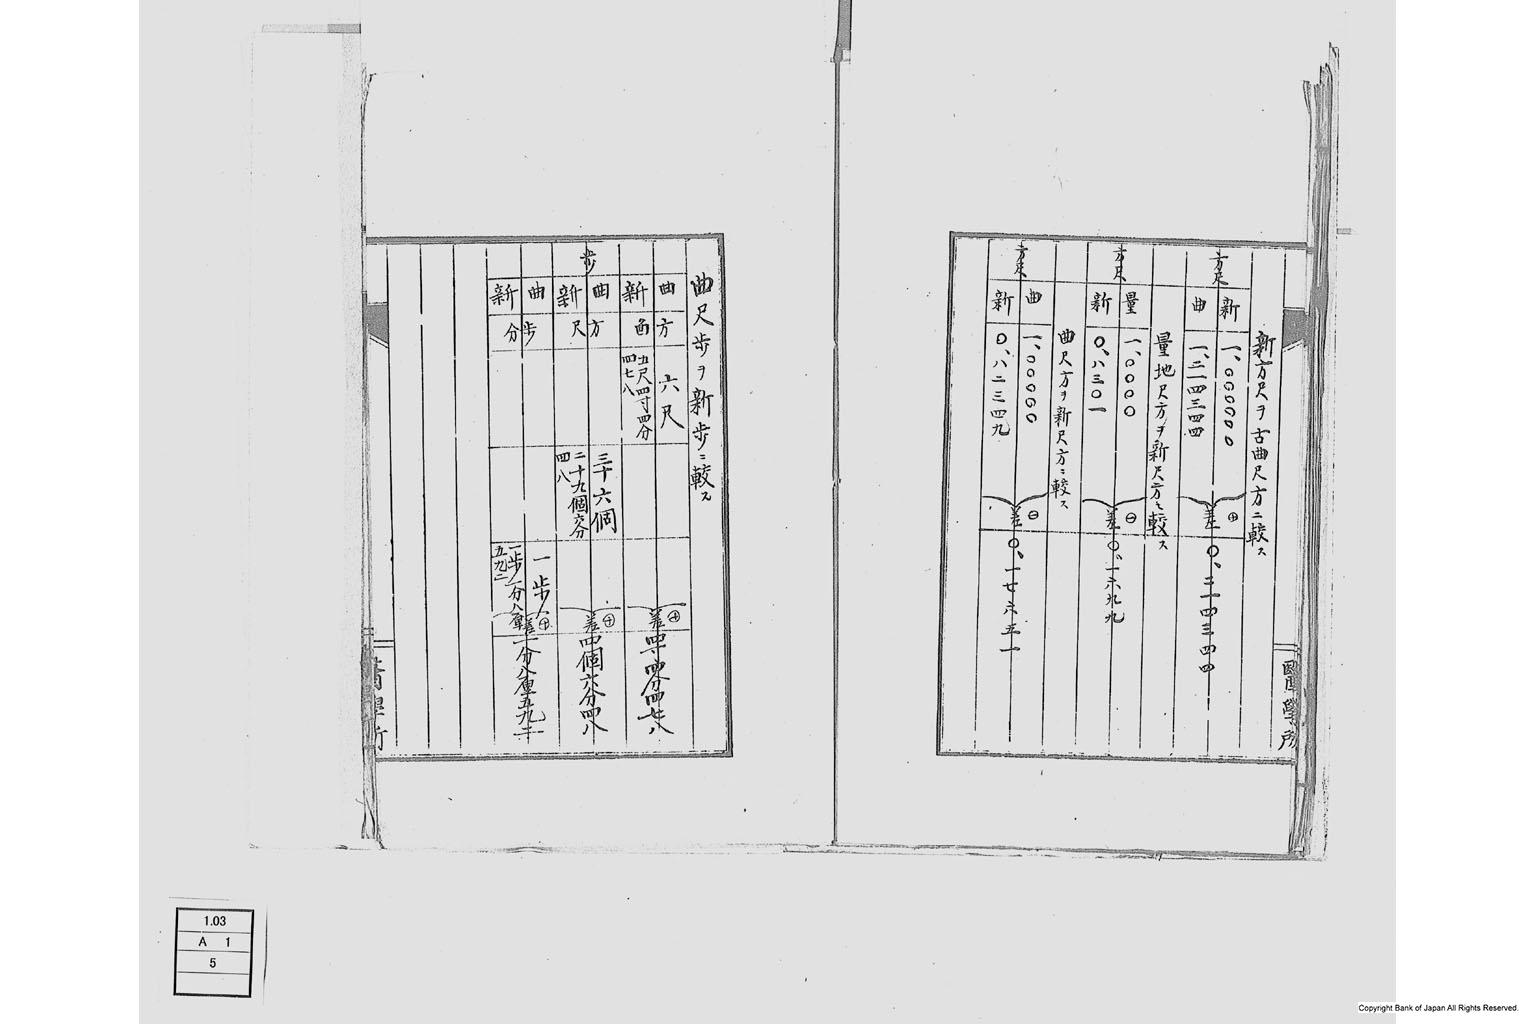 新方尺ヲ古曲尺方ニ較ス
方尺
新 一、〇〇〇〇〇
曲 一、二一四三四四
差 ㊉ 〇、二一四三四四
量地尺方ヲ新尺方ニ較ス
方尺
量 一、〇〇〇〇
新 〇、八三〇一
差 ㊀ 〇、一六九九
曲尺方ヲ新尺方ニ較ス
方尺
曲 一、〇〇〇〇〇
新 〇、八二三四九
差 ㊀ 〇、一七六五一
醫學所
曲尺歩ヲ新歩ニ較ス
歩
曲方 六尺
新面 五尺四寸四分四七八
差 ㊉ 四寸四分四七八
曲方 三十六個
新尺 二十九個六分四八
差 ㊉ 四個六分四八
曲歩 一歩
新分 一歩一分八厘五九二
差 ㊉ 一分八厘五九二
1.03
A 1
5
Copyright Bank of Japan All Rights Reserved.